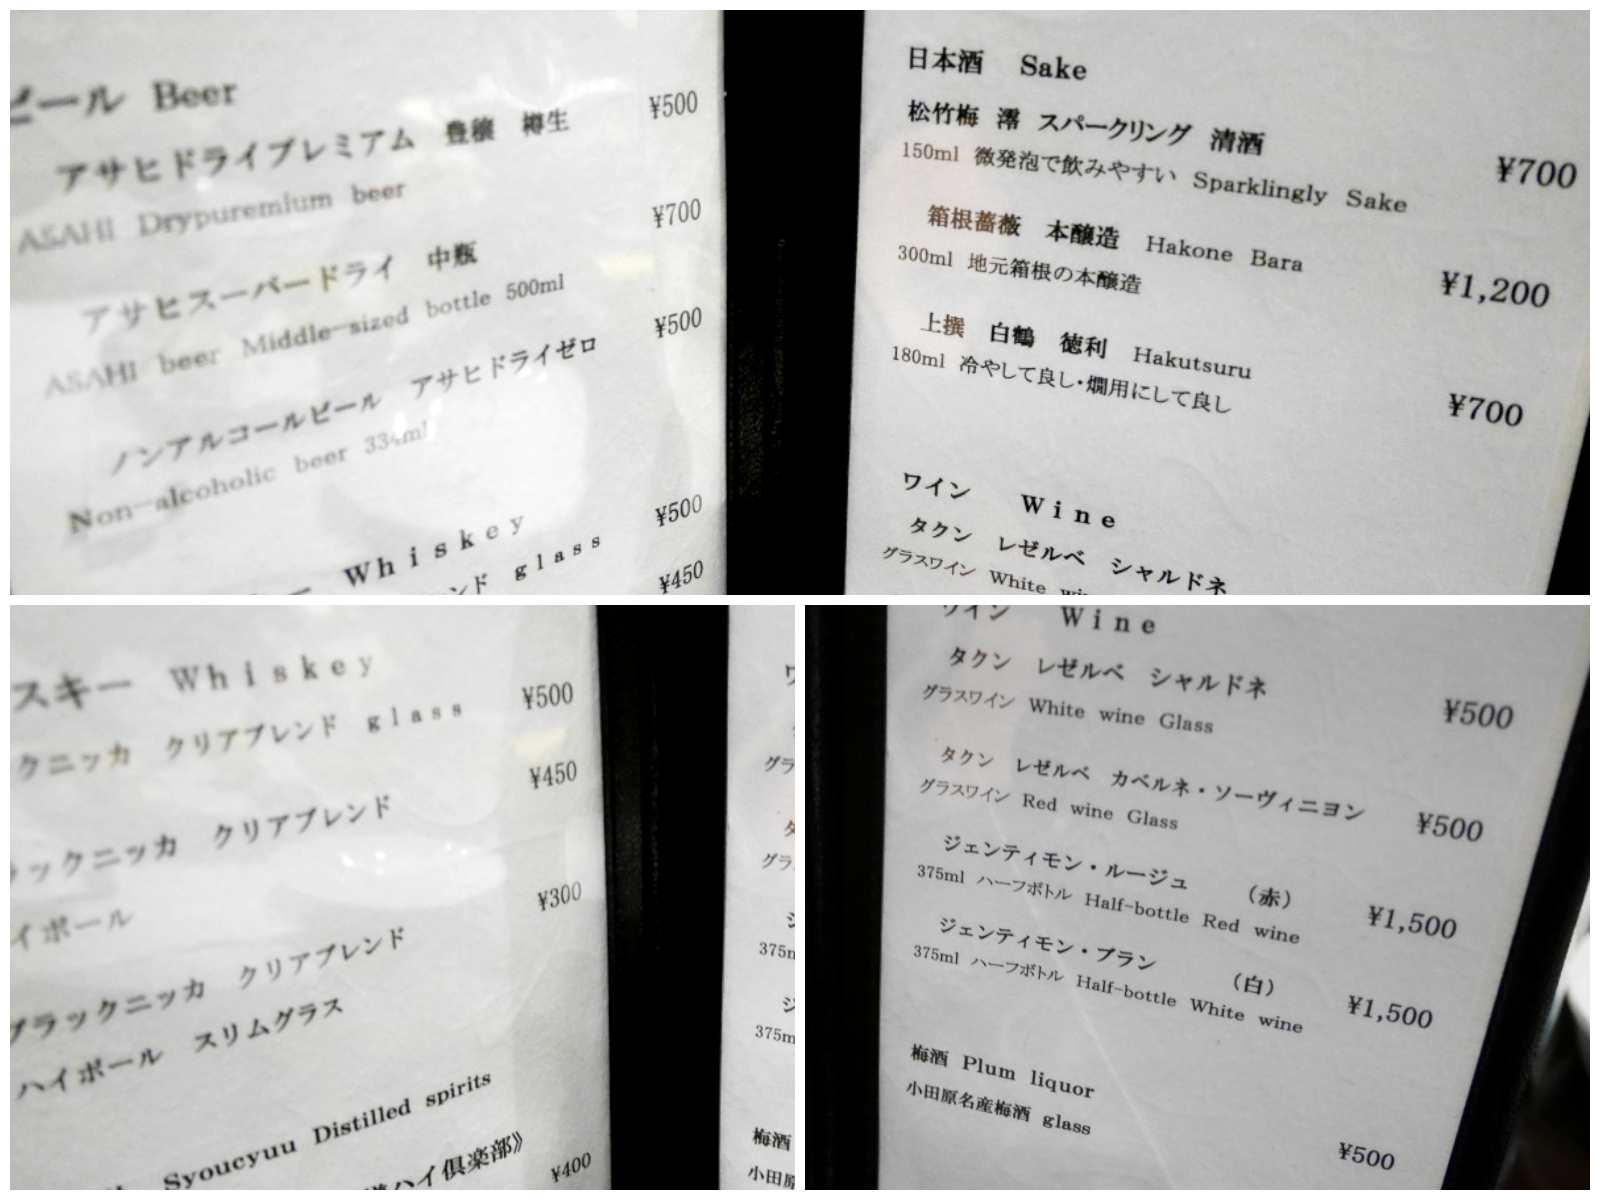 ビール Beer
アサヒドライプレミアム 豊穣 樽生 ¥500
ASAHI Drypuremium beer
アサヒスーパードライ 中瓶 ¥700
ASAHI beer Middle-sized bottle 500ml
ノンアルコールビール アサヒドライゼロ ¥500
Non-alcoholic beer 334ml
ー Whiskey
ンド glass ¥500
¥450
日本酒 Sake
松竹梅 澪 スパークリング 清酒 ¥700
150ml 微発泡で飲みやすい Sparklingly Sake
箱根薔薇 本醸造 Hakone Bara ¥1,200
300ml 地元箱根の本醸造
上撰 白鶴 徳利 Hakutsuru ¥700
180ml 冷やして良し・燗用にして良し
ワイン Wine
タクン レゼルベ シャルドネ
グラスワイン White wi
スキー Whiskey
クニッカ クリアブレンド glass ¥500
ラックニッカ クリアブレンド ¥450
イボール
ブラックニッカ クリアブレンド ¥300
ハイボール スリムグラス
Syoucyuu Distilled spirits
ハイ倶楽部》 ¥400
グラ
グラ
ジ
375m
ジ
375m
梅酒
小田原
ワイン Wine
タクン レゼルベ シャルドネ ¥500
グラスワイン White wine Glass
タクン レゼルベ カベルネ・ソーヴィニヨン ¥500
グラスワイン Red wine Glass
ジェンティモン・ルージュ (赤) ¥1,500
375ml ハーフボトル Half-bottle Red wine
ジェンティモン・ブラン (白) ¥1,500
375ml ハーフボトル Half-bottle White wine
梅酒 Plum liquor
小田原名産梅酒 glass ¥500